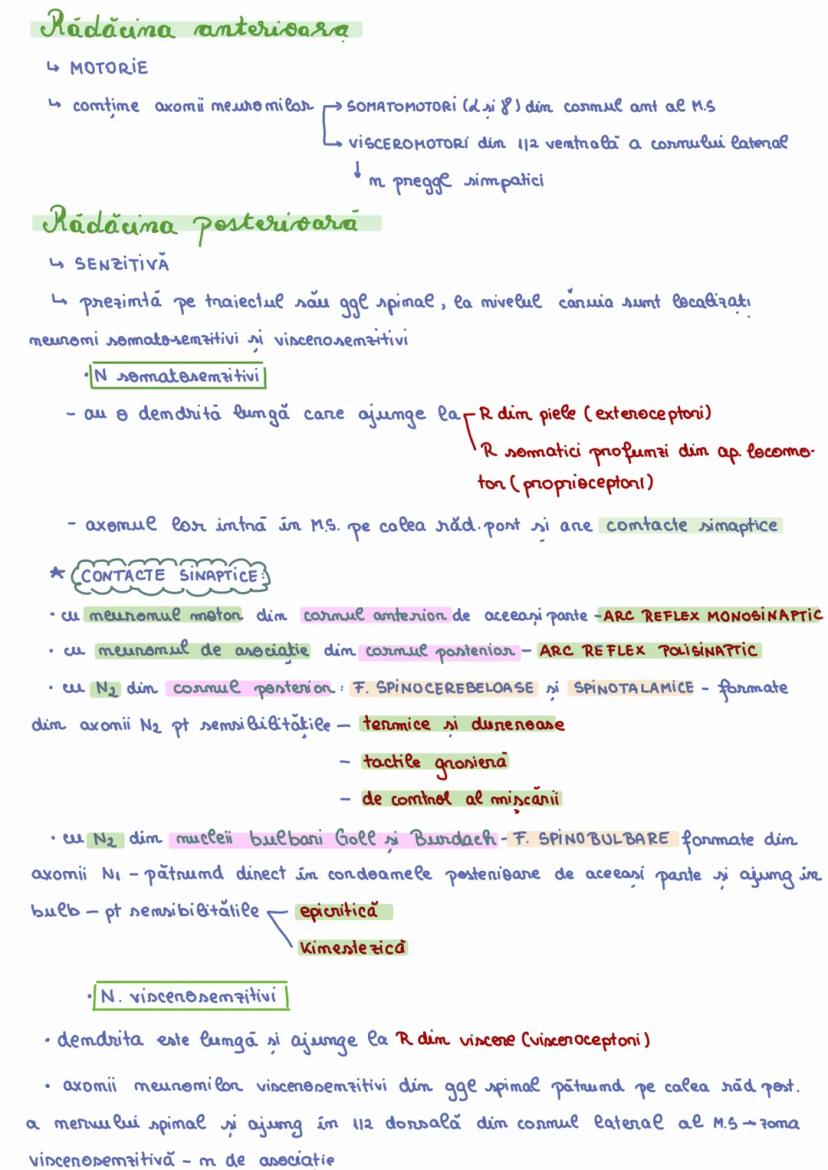 Rădăcina anterioara
↳ MOTORIE
↳ conține axonii neuronilor → SOMATOMOTORI (α și γ) din cornul ant al M.S
→ VISCEROMOTORI din 1/2 ventrală a cornului lateral
↓ n preggl simpatici
Rădăcina posterioară
↳ SENZITIVĂ
↳ prezintă pe traiectul său ggl spinal, la nivelul căruia sunt localizați
neuroni somato-senzitivi și viscerosenzitivi
• N somatosenzitivi
- au o dendrită lungă care ajunge la R din piele (exteroceptori)
R somatici profunzi din ap. locomo-
tor (proprioceptori)
- axonul lor intră în M.S. pe calea răd. post și are contacte sinaptice
* CONTACTE SINAPTICE:
• cu neuronul motor din cornul anterior de aceeași parte - ARC REFLEX MONOSINAPTIC
• cu neuronul de asociație din cornul posterior - ARC REFLEX POLISINAPTIC
• cu N2 din cornul posterior: F. SPINOCEREBELOASE și SPINOTALAMICE - formate
din axonii N2 pt sensibilitățile - termice și dureroase
- tactile grosieră
- de control al mișcării
• cu N2 din nucleii bulbari Goll și Burdach - F. SPINOBULBARE formate din
axonii N1 - pătrund direct în cordoanele posterioare de aceeași parte și ajung în
bulb - pt sensibilitățile epicritică
Kinestezică
• N. viscerosenzitivi
• dendrita este lungă și ajunge la R din viscere (visceroceptori)
• axonii neuronilor viscerosenzitivi din ggl spinal pătrund pe calea răd post.
a nervului spinal și ajung în 1/2 dorsală din cornul lateral al M.S → zona
viscerosenzitivă - n de asociație